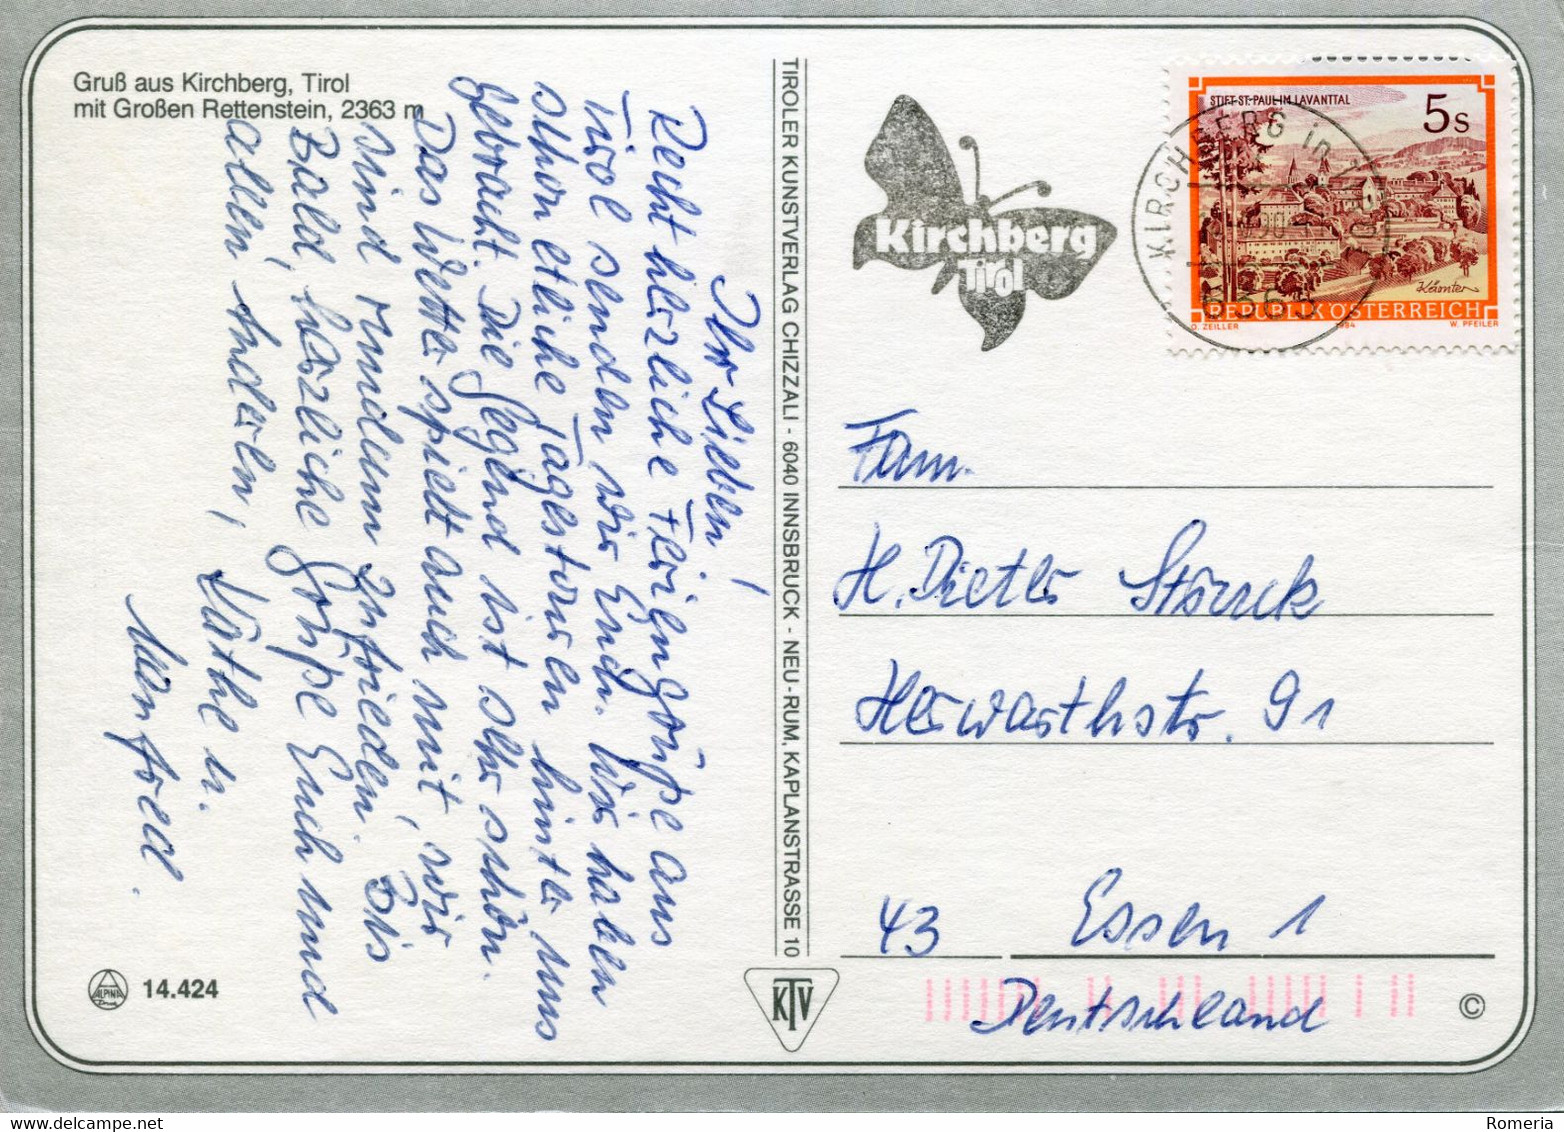 Gruß aus Kirchberg, Tirol
mit Großen Rettenstein, 2363 m
Ihr Lieben!
Recht herzliche Feriengrüße aus
Tirol senden wir Euch. Wir haben
schon etliche Tagestouren hinter uns
gebracht. Die Gegend ist sehr schön.
Das Wetter spielt auch mit, wir
sind rundum zufrieden. Bis
Bald, herzliche Grüße Euch und
allen anderen,
Käthe u.
Manfred.
ALPINA
14.424
TIROLER KUNSTVERLAG CHIZZALI - 6040 INNSBRUCK - NEU-RUM, KAPLANSTRASSE 10
KTV
Kirchberg
Tirol
KIRCHBERG in TIROL
6365
STIFT ST. PAUL IM LAVANTTAL
5 S
Kärnten
REPUBLIK ÖSTERREICH
O. ZEILLER 1984 W. PFEILER
Fam.
H. Dieter Störuck
Herwarthstr. 91
43 Essen 1
Deutschland
©
Romeria